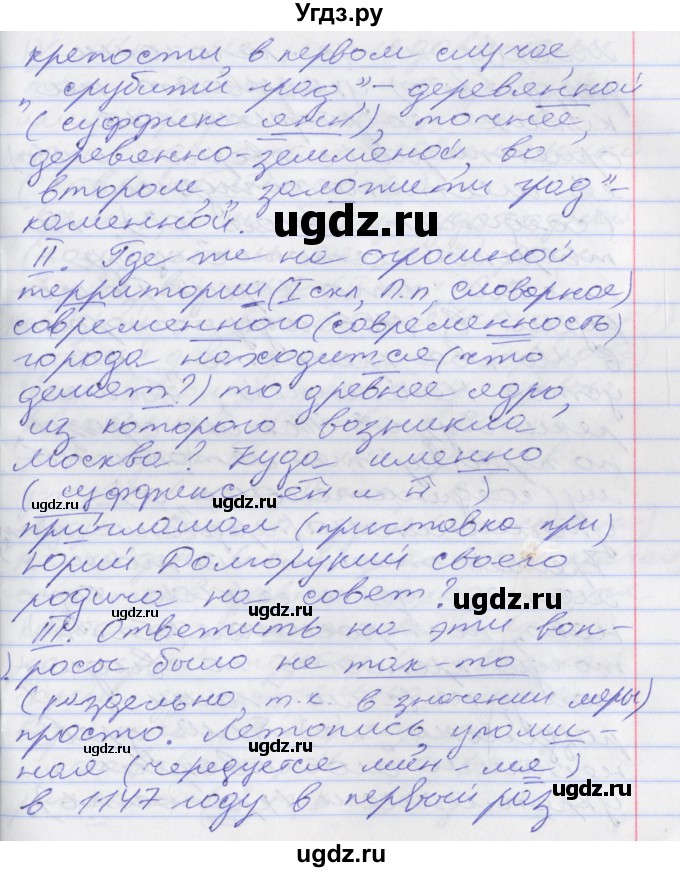 Угдз.ру
крепости, в первом случае
„срубити град"– деревянной
(суффикс янн), точнее,
деревянно-земляной, во
втором „заложити град"–
каменной.
II. Где же на огромной
территории (I скл, П.п, словарное)
современного (современность)
города находится (что
делает?) то древнее ядро,
из которого возникла
Москва? Куда именно
(суффикс ен и н)
приглашал (приставка при)
Юрий Долгорукий своего
родича на совет?
III. Ответить на эти воп-
росы было не так-то
(раздельно, т.к. в значении меры)
просто. Летопись, упоми-
ная (чередуется мин – мя)
в 1147 году в первый раз
ugdz.ru
ugdz.ru
ugdz.ru
ugdz.ru
ugdz.ru
ugdz.ru
ugdz.ru
ugdz.ru
ugdz.ru
ugdz.ru
ugdz.ru